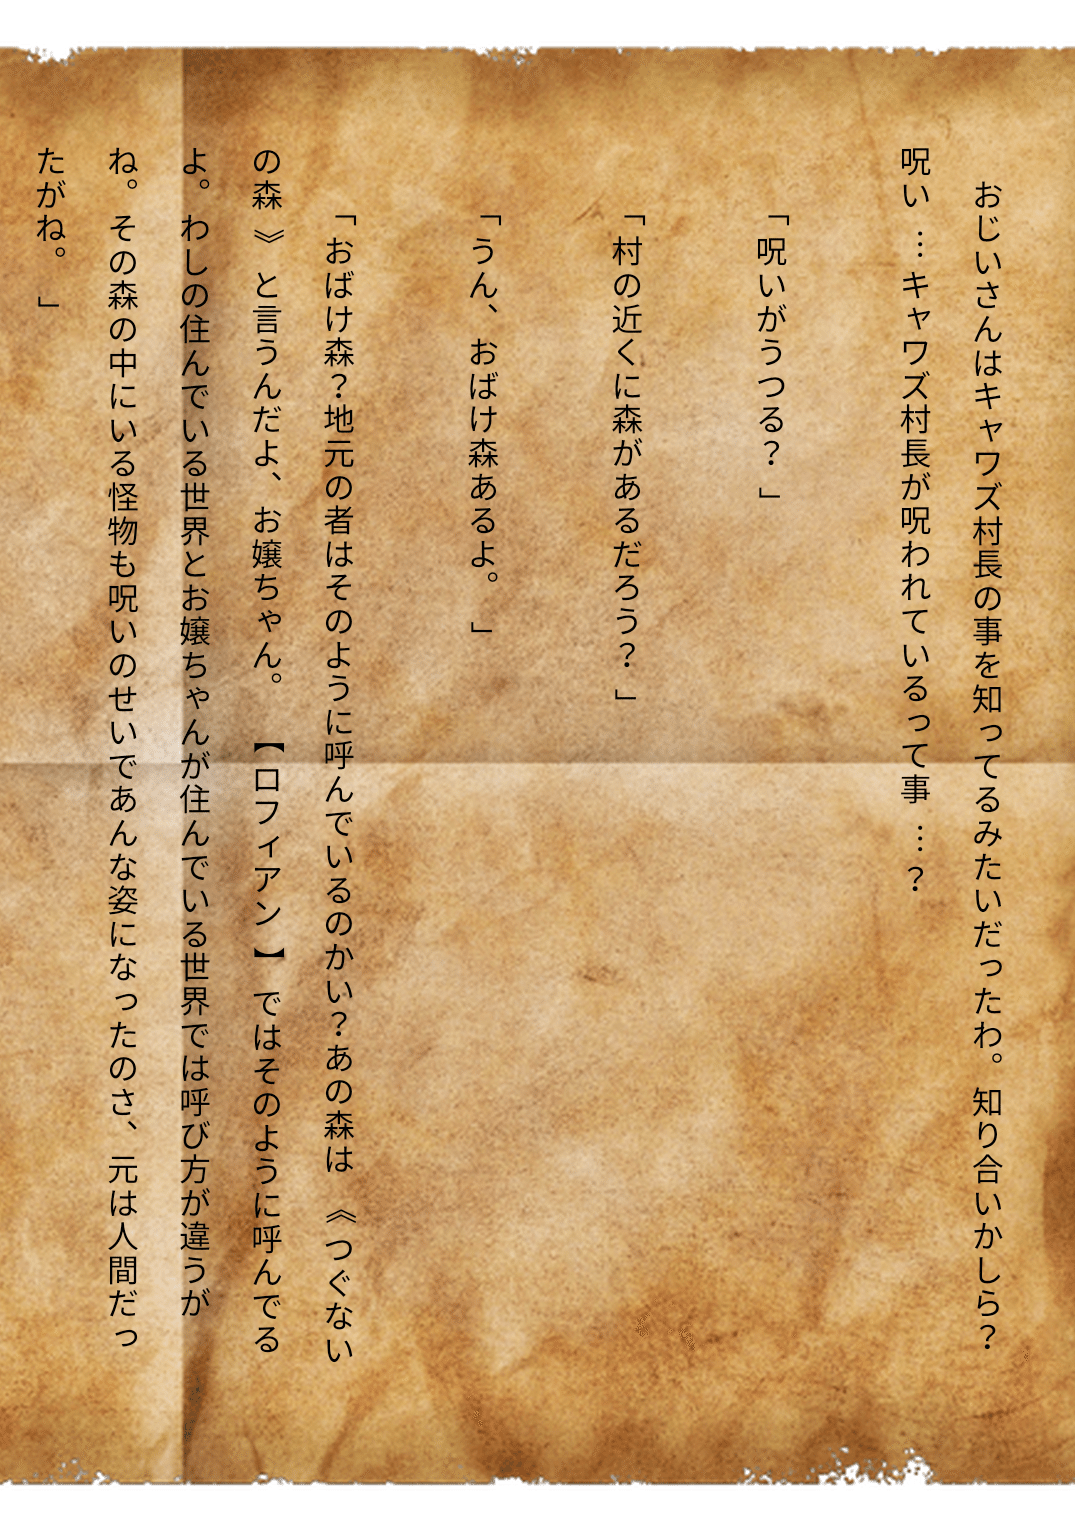 おじいさんはキャワズ村長の事を知ってるみたいだったわ。知り合いかしら？
呪い…キャワズ村長が呪われているって事…？
「呪いがうつる？」
「村の近くに森があるだろう？」
「うん、おばけ森あるよ。」
「おばけ森？地元の者はそのように呼んでいるのかい？あの森は《つぐない
の森》と言うんだよ、お嬢ちゃん。【ロフィアン】ではそのように呼んでる
よ。わしの住んでいる世界とお嬢ちゃんが住んでいる世界では呼び方が違うが
ね。その森の中にいる怪物も呪いのせいであんな姿になったのさ、元は人間だっ
たがね。」